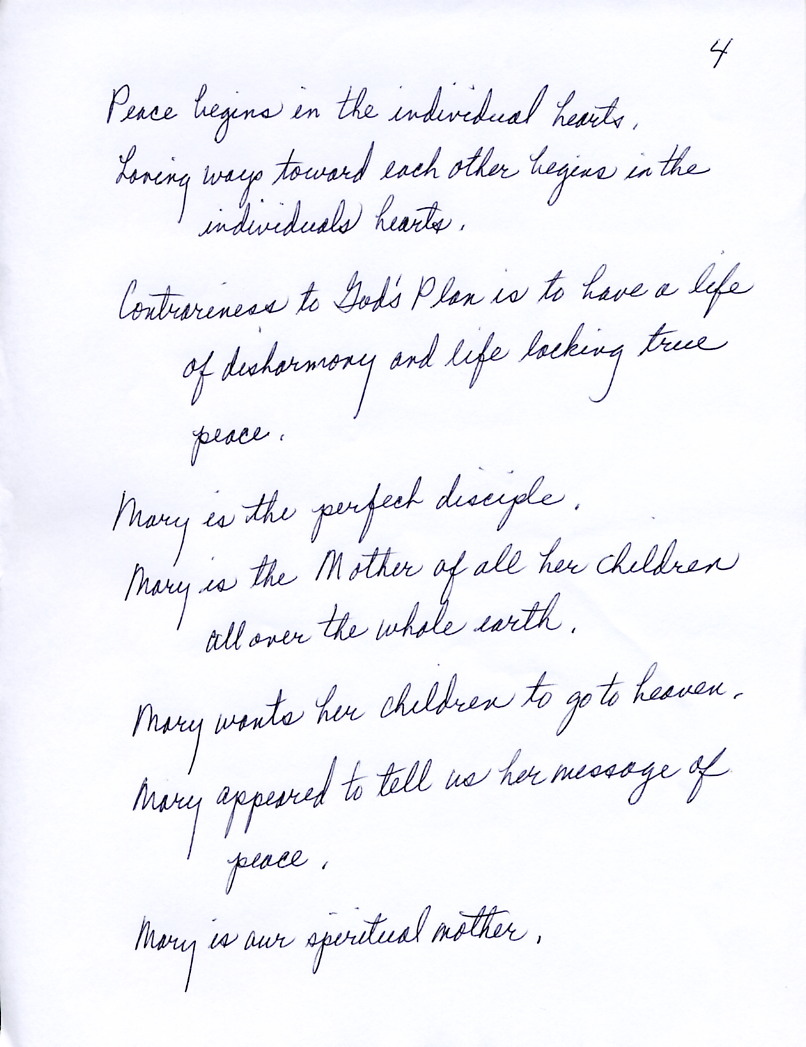 4
Peace begins in the individual hearts.
Loving ways toward each other begins in the
individuals hearts.
Contrariness to God's Plan is to have a life
of disharmony and life lacking true
peace.
Mary is the perfect disciple.
Mary is the Mother of all her children
all over the whole earth.
Mary wants her children to go to heaven.
Mary appeared to tell us her message of
peace.
Mary is our spiritual mother.